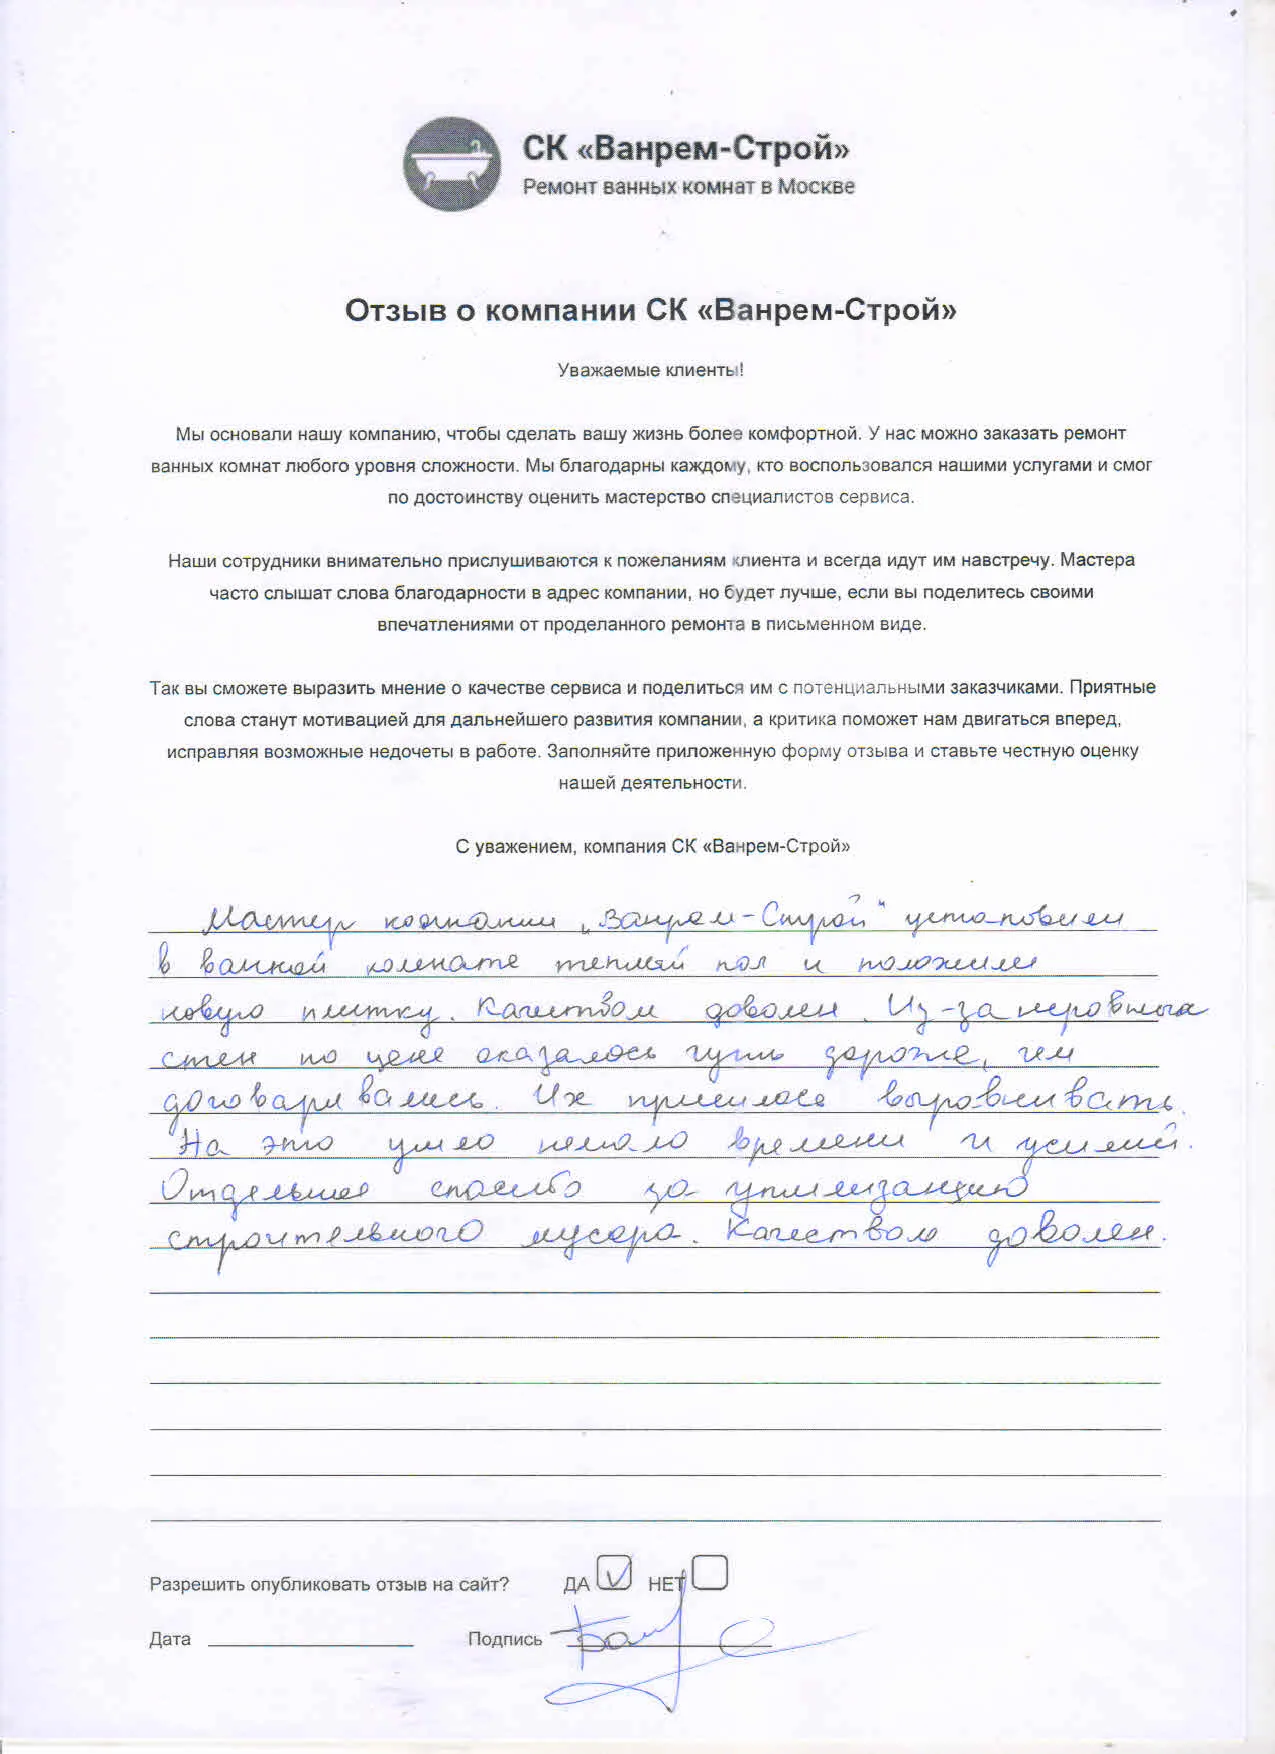 СК «Ванрем-Строй»
Ремонт ванных комнат в Москве
Отзыв о компании СК «Ванрем-Строй»
Уважаемые клиенты!
Мы основали нашу компанию, чтобы сделать вашу жизнь более комфортной. У нас можно заказать ремонт
ванных комнат любого уровня сложности. Мы благодарны каждому, кто воспользовался нашими услугами и смог
по достоинству оценить мастерство специалистов сервиса.
Наши сотрудники внимательно прислушиваются к пожеланиям клиента и всегда идут им навстречу. Мастера
часто слышат слова благодарности в адрес компании, но будет лучше, если вы поделитесь своими
впечатлениями от проделанного ремонта в письменном виде.
Так вы сможете выразить мнение о качестве сервиса и поделиться им с потенциальными заказчиками. Приятные
слова станут мотивацией для дальнейшего развития компании, а критика поможет нам двигаться вперед,
исправляя возможные недочеты в работе. Заполняйте приложенную форму отзыва и ставьте честную оценку
нашей деятельности.
С уважением, компания СК «Ванрем-Строй»
Мастер компании „Ванрем-Строй“ установил
в ванной комнате теплый пол и положил
новую плитку. Качеством доволен. Из-за неровных
стен по цене оказалось чуть дороже, чем
договаривались. Их пришлось выравнивать.
На это ушло немало времени и усилий.
Отдельное спасибо за утилизацию
строительного мусора. Качеством доволен.
Разрешить опубликовать отзыв на сайт? ДА НЕТ
Дата Подпись